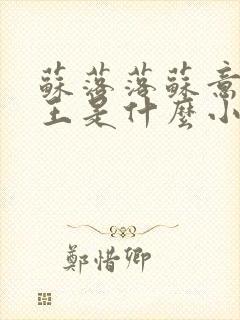 蘇落落蘇意
主是什麼小
鄭惜卿